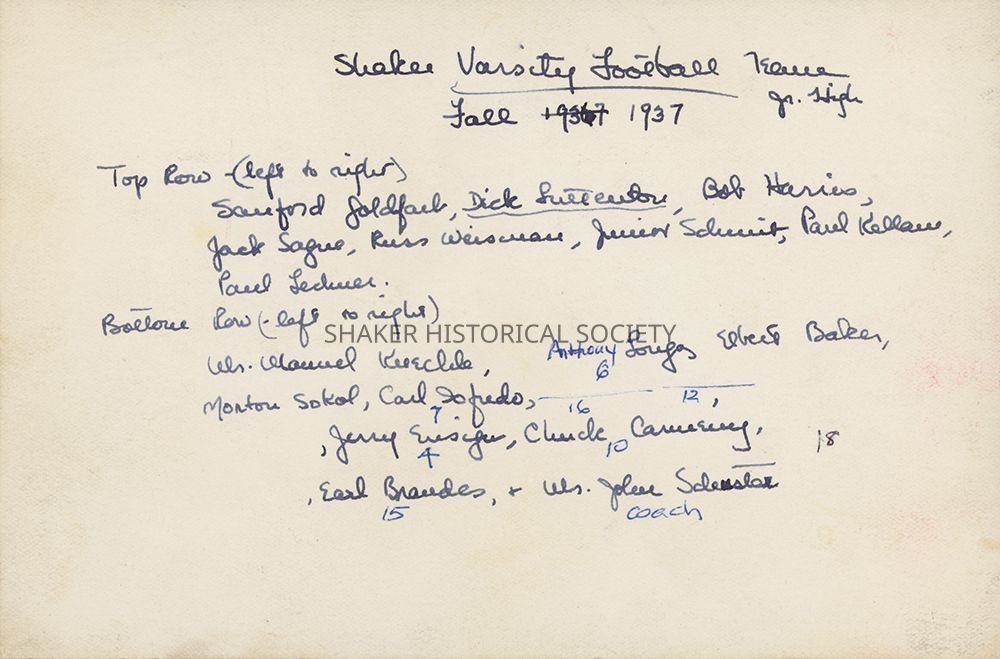 Shaker Varsity Football Team
Jr. High
Fall 1937
Top Row - (left to right)
Sanford Goldfarb, Dick Luttenton, Bob Harris,
Jack Sague, Russ Weisman, Junior Schmit, Paul Kellam,
Paul Lechner.
Bottom Row (- left to right)
SHAKER HISTORICAL SOCIETY
Mr. Manuel Kuechle, Anthony Longo Elbert Baker,
6
Morton Sokol, Carl Lofredo,
7 16 12 ,
, Jerry Ensign, Chuck
4 10 18
, Earl Brandes, + Mr. John Schuster
15 coach